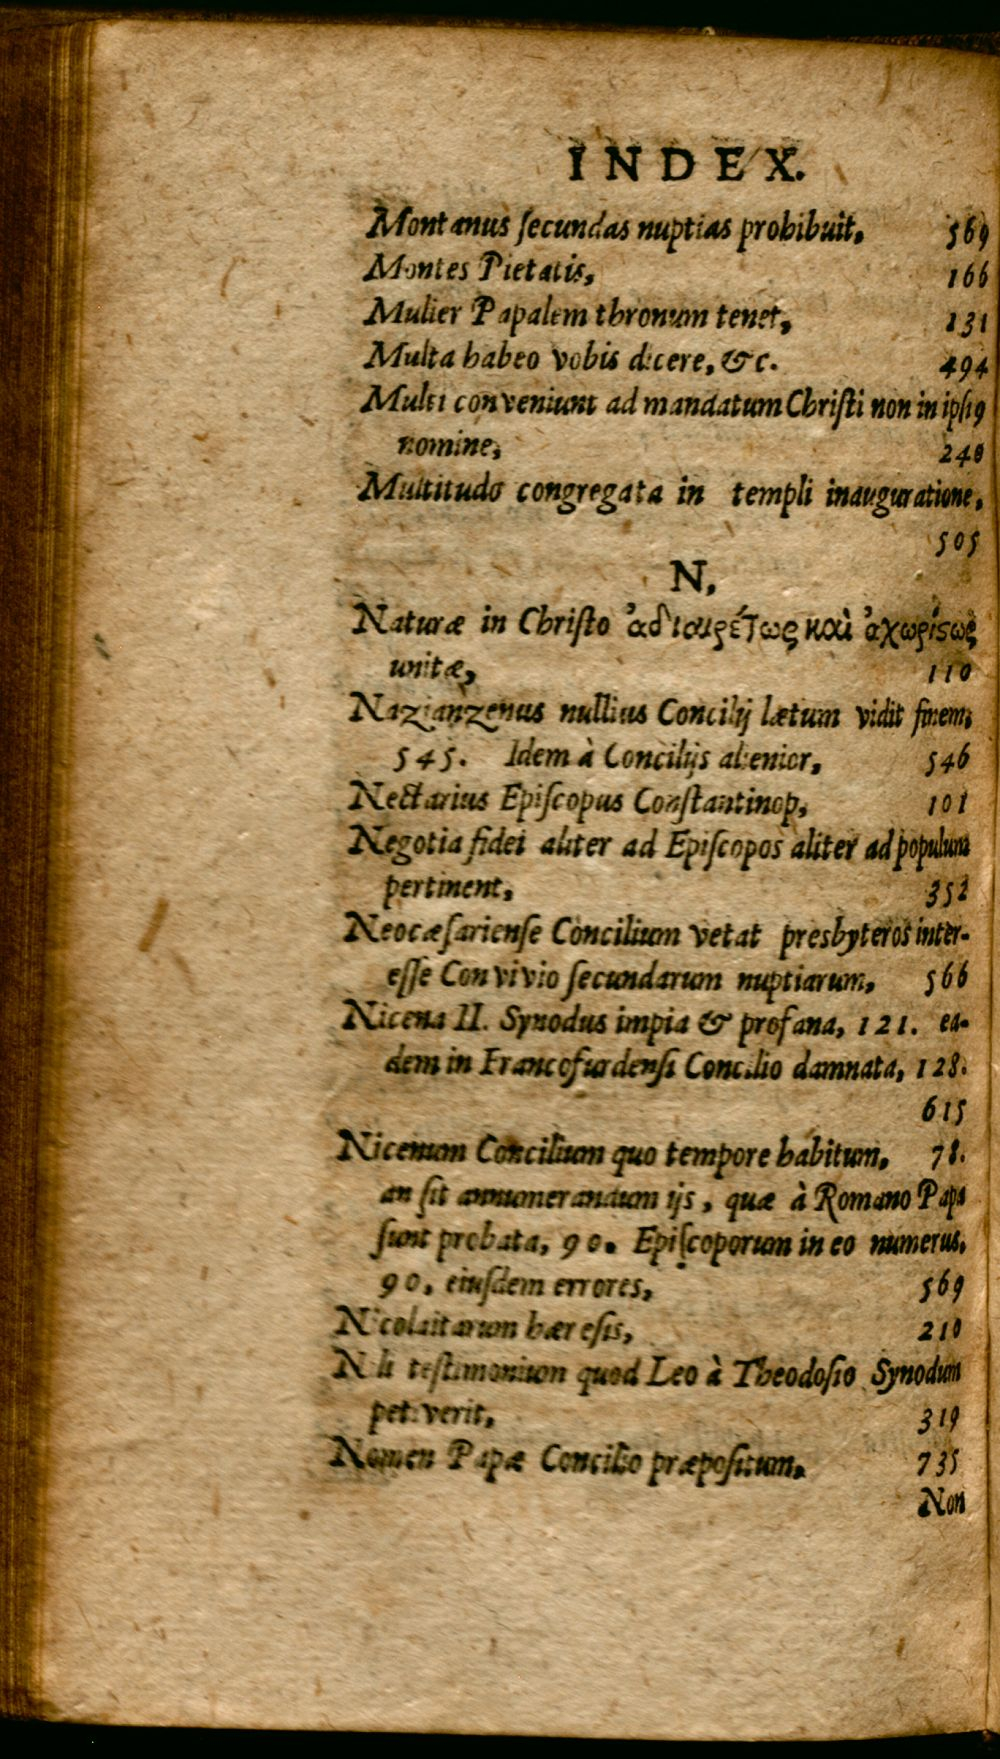 INDEX.
Montanus ſecundas nuptias prohibuit, 569
Montes Pietatis, 166
Mulier Papalem thronum tenet, 131
Multa habeo vobis dicere, &c. 494
Multi conveniunt ad mandatum Chriſti non in ipſiꝰ
nomine, 240
Multitudo congregata in templi inauguratione,
505
N,
Naturæ in Chriſto ἀδιαιρέτως καὶ ἀχωρίςως
unitæ, 110
Nazianzenus nullius Concilij lætum vidit finem,
545. Idem à Concilijs alienior, 546
Nectarius Epiſcopus Conſtantinop, 101
Negotia fidei aliter ad Epiſcopos aliter ad populum
pertinent, 352
Neocæſarienſe Concilium vetat presbyteros inter-
eſſe Convivio ſecundarum nuptiarum, 566
Nicena II. Synodus impia & profana, 121. ea-
dem in Francofurdenſi Concilio damnata, 128.
615
Nicenum Concilium quo tempore habitum, 78.
an ſit annumerandum ijs, quæ à Romano Papa
ſunt probata, 90. Epiſcoporum in eo numerus,
90, eiuſdem errores, 569
Nicolaitarum hæreſis, 210
Nili teſtimonium quod Leo à Theodoſio Synodum
petiverit, 319
Nomen Papæ Concilio præpoſitum, 735
Non